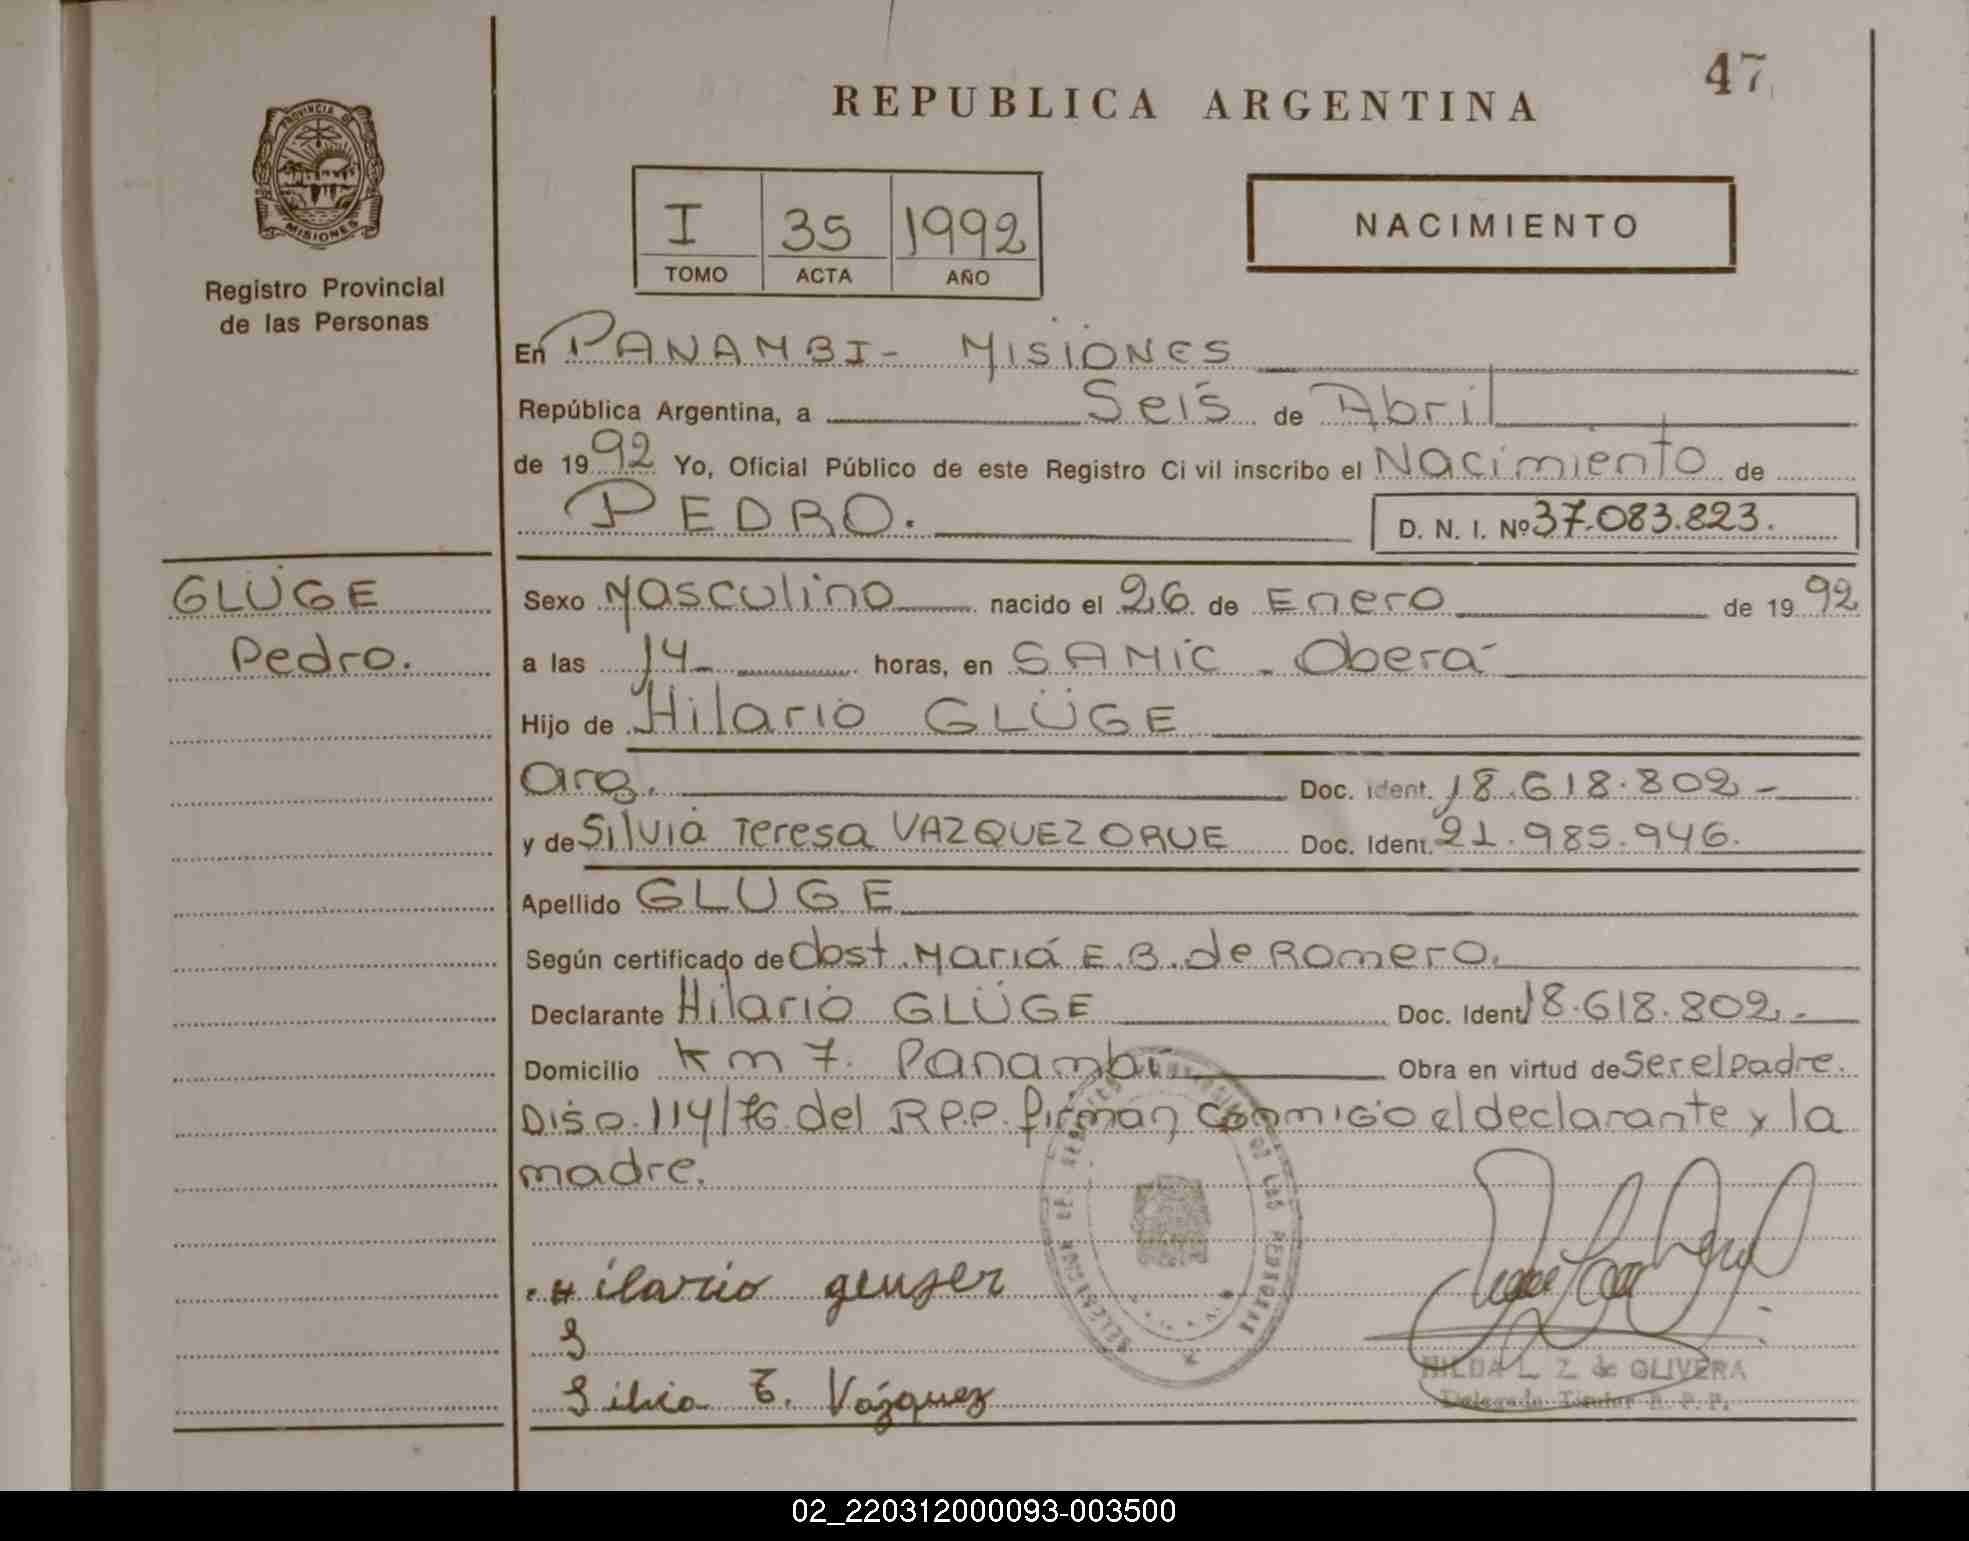 47
REPUBLICA ARGENTINA
PROVINCIA DE
MISIONES
Registro Provincial
de las Personas
I 35 1992
TOMO ACTA AÑO
NACIMIENTO
En PANAMBI - MISIONES
República Argentina, a Seis de Abril
de 1992 Yo, Oficial Público de este Registro Ci vil inscribo el Nacimiento de
PEDRO. D. N. I. Nº 37.083.823.
GLÜGE
Pedro.
Sexo Masculino nacido el 26 de Enero de 1992
a las 14 horas, en SAMIC - Oberá
Hijo de Hilario GLÜGE
arg. Doc. ident. 18.618.802-
y de Silvia Teresa VAZQUEZ ORUE Doc. Ident. 21.985.946.
Apellido GLUGE
Según certificado de Obst. María E.B. de Romero.
Declarante Hilario GLÜGE Doc. Ident 18.618.802.-
Domicilio Km 7. Panambi Obra en virtud de ser el padre.
Disp. 114/76 del R.P.P. firman conmigo el declarante y la
madre.
Hilario
S
Silvia T. Vázquez
HILDA L. Z. de OLIVERA
Delegada Titular R. P. P.
02_220312000093-003500